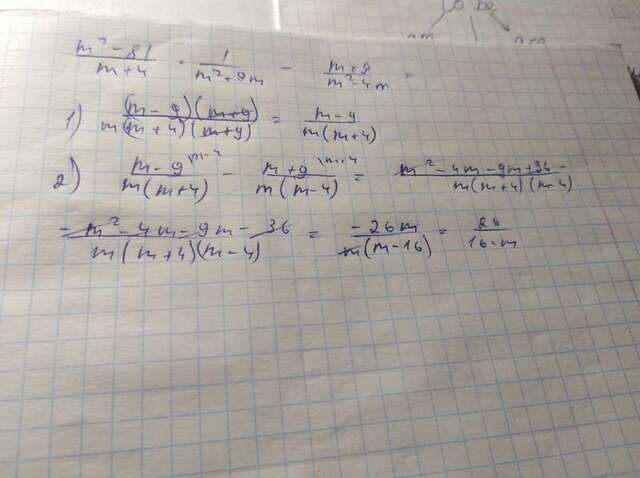 m² - 81 / m + 4 · 1 / m² + 9m - m + 9 / m² - 4m =
1) (m - 9)(m + 9) / m(m + 4)(m + 9) = m - 9 / m(m + 4)
2) m - 9 \m-4 / m(m + 4) - m + 9 \m+4 / m(m - 4) = m² - 4m - 9m + 36 - / m(m + 4)(m - 4)
- m² - 4m - 9m - 36 / m(m + 4)(m - 4) = - 26m / m(m - 16) = 26 / 16 - m